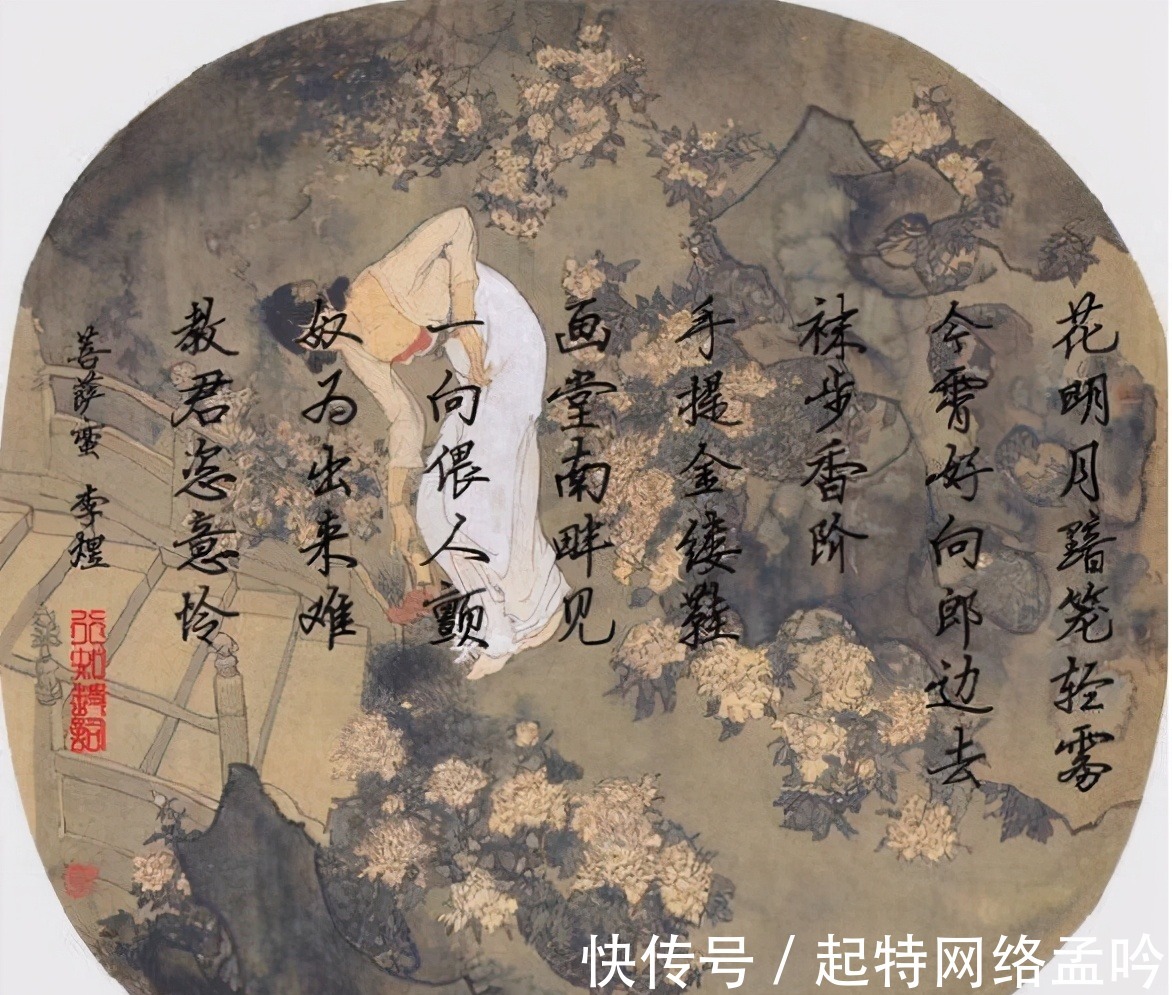 花明月黯笼轻雾
今霄好向郎边去
袜步香阶
手提金缕鞋
画堂南畔见
一向偎人颤
奴为出来难
教君恣意怜
菩萨蛮 李煜
快传号 / 起特网络孟吟